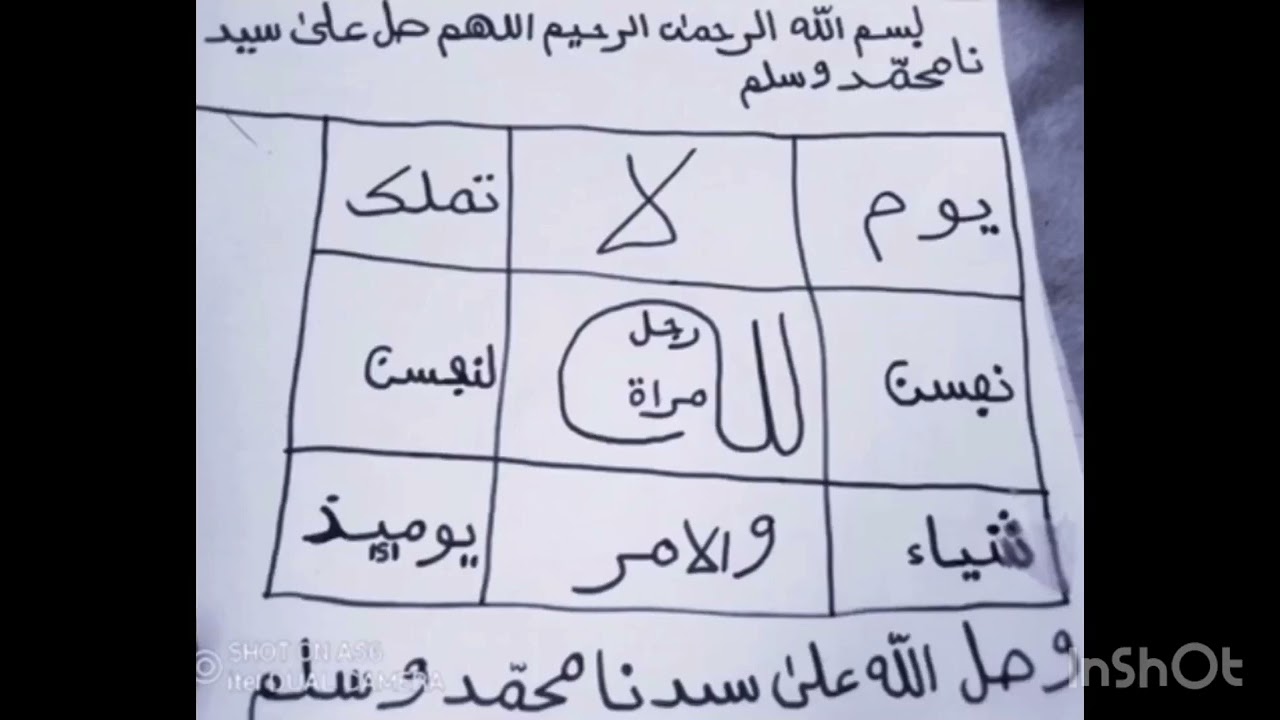 بسم الله الرحمن الرحيم اللهم صل على سيد
نا محمّد وسلم
يوم لا تملك
نفسن لله لنفسن
رجل
مراة
شياء والامر يوميذ
وصل الله على سيدنا محمّد وسلم
SHOT ON A56
itel DUAL CAMERA
InShOt